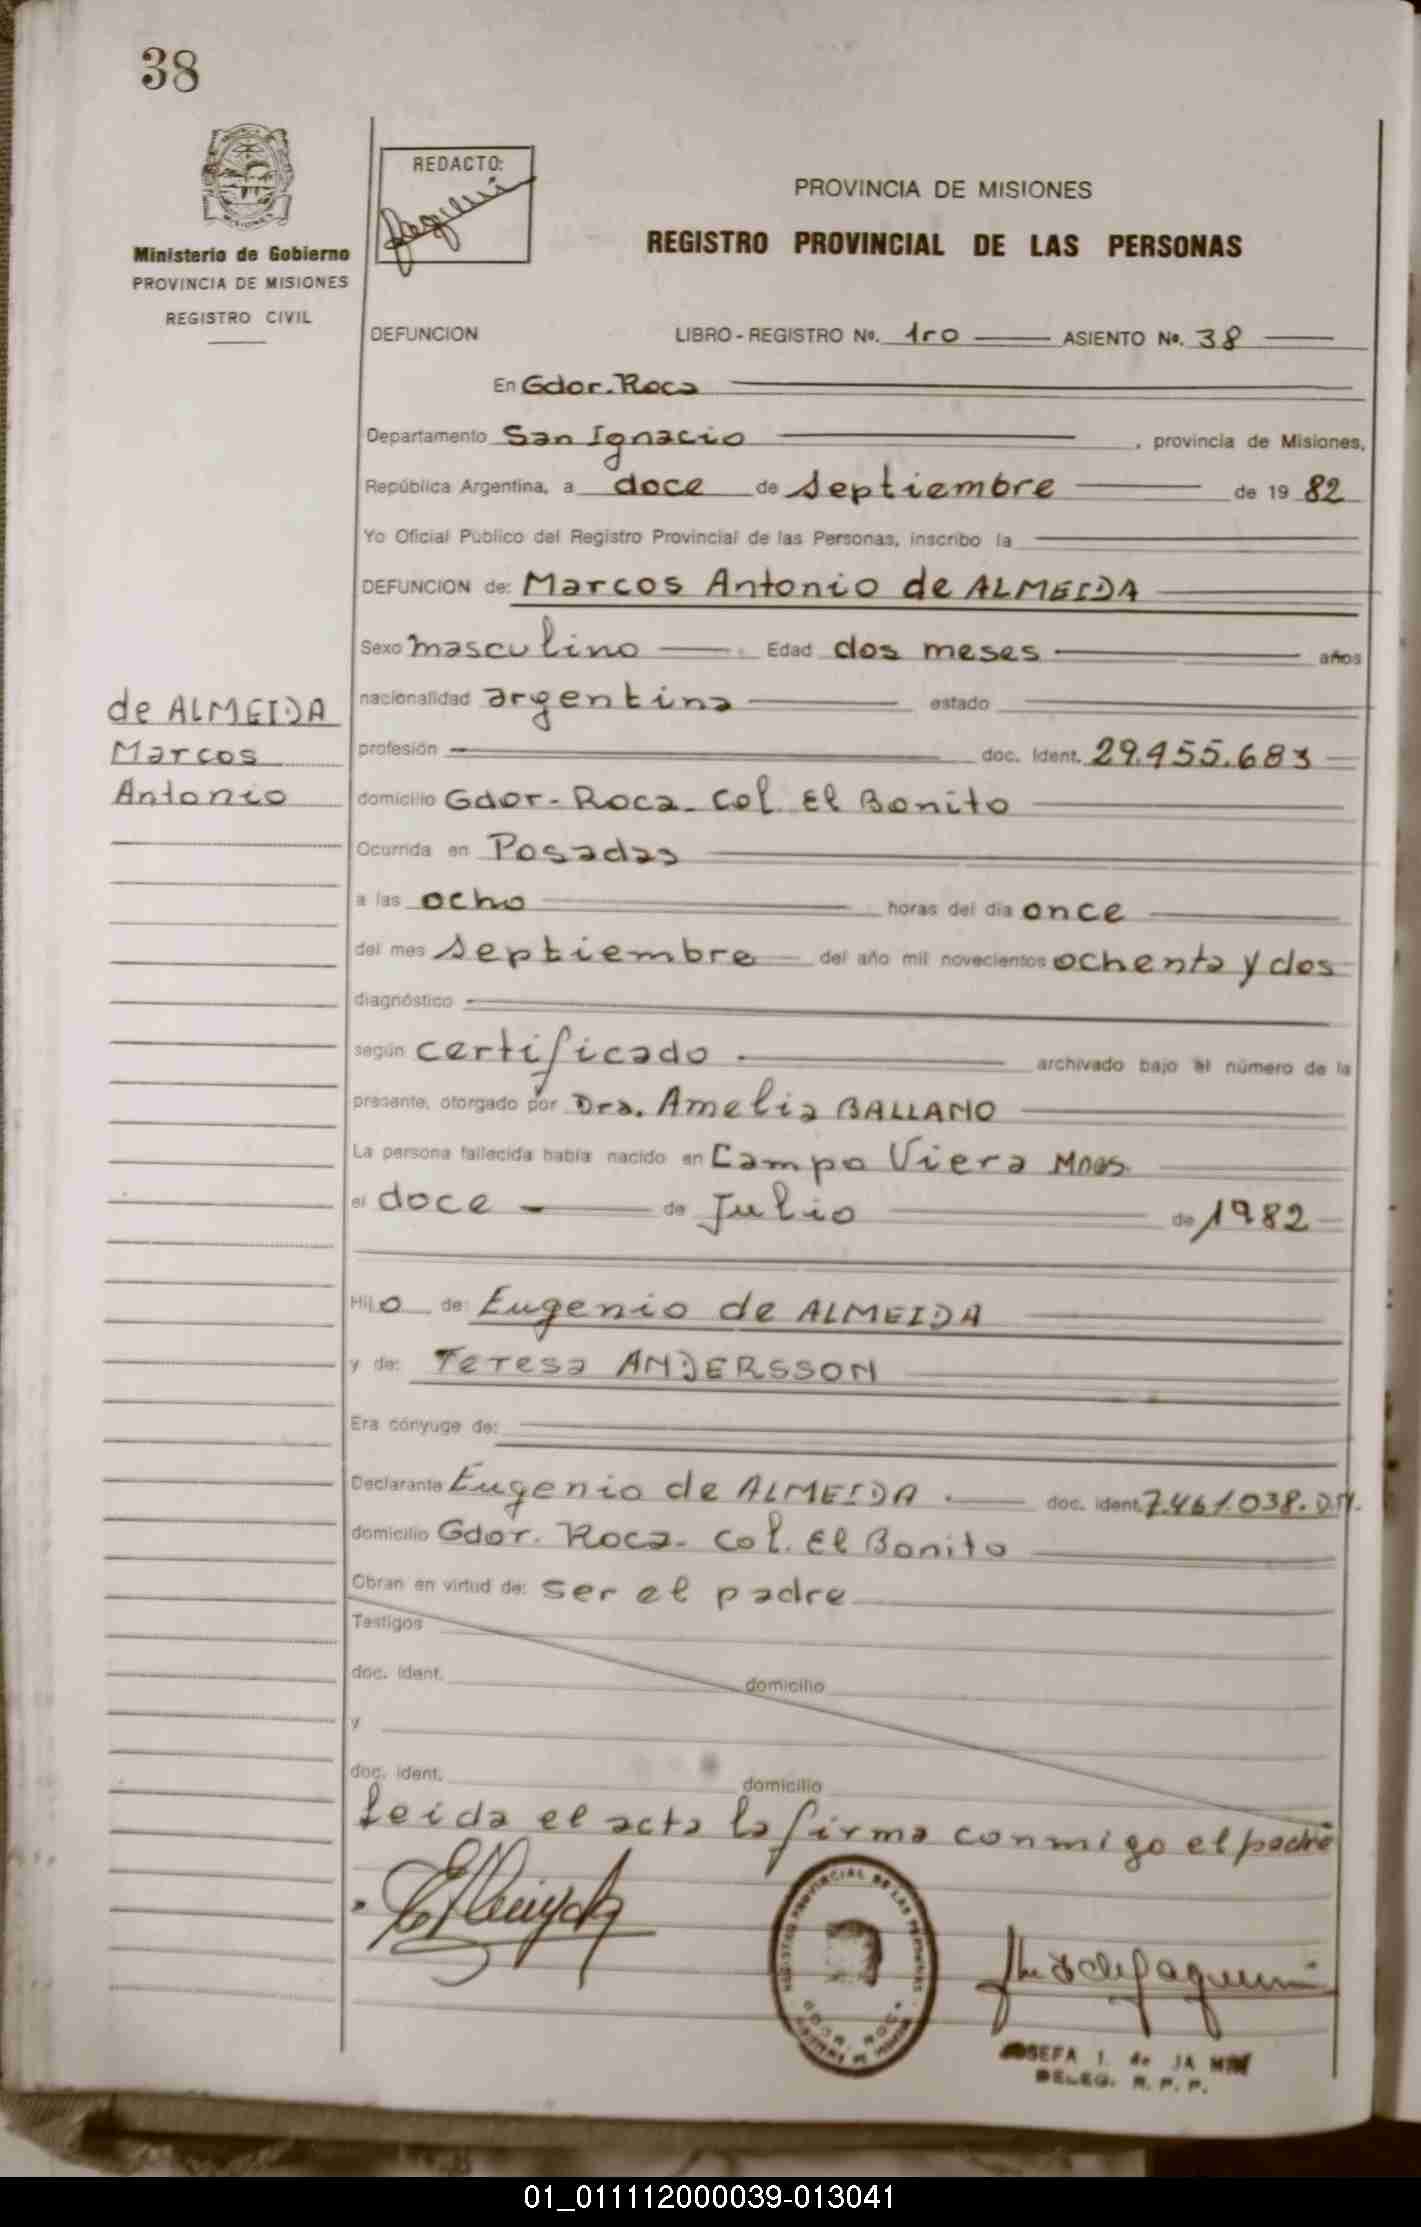 38
MISIONES
Ministerio de Gobierno
PROVINCIA DE MISIONES
REGISTRO CIVIL
REDACTO:
PROVINCIA DE MISIONES
REGISTRO PROVINCIAL DE LAS PERSONAS
DEFUNCION LIBRO - REGISTRO No. 1ro ASIENTO No. 38
En Gdor. Roca
Departamento San Ignacio , provincia de Misiones,
República Argentina, a doce de septiembre de 19 82
Yo Oficial Público del Registro Provincial de las Personas, inscribo la
DEFUNCION de: Marcos Antonio de ALMEIDA
Sexo masculino Edad dos meses años
nacionalidad argentina estado
de ALMEIDA
Marcos
Antonio
profesión doc. ident. 29.455.683
domicilio Gdor. Roca. Col. El Bonito
Ocurrida en Posadas
a las ocho horas del día once
del mes septiembre del año mil novecientos ochenta y dos
diagnóstico
según certificado archivado bajo el número de la
presente, otorgado por Dra. Amelia BALLANO
La persona fallecida había nacido en Campo Viera Mnes.
el doce de Julio de 1982
Hijo de: Eugenio de ALMEIDA
y de: Teresa ANDERSSON
Era cónyuge de:
Declarante Eugenio de ALMEIDA doc. ident. 7.461.038. D.M.
domicilio Gdor. Roca. Col. El Bonito
Obran en virtud de: ser el padre
Testigos
doc. ident. domicilio
y
doc. ident. domicilio
Leida el acta la firma conmigo el padre
REGISTRO PROVINCIAL DE LAS PERSONAS
GDOR. ROCA
JOSEFA I. de
DELEG. R. P. P.
01_011112000039-013041